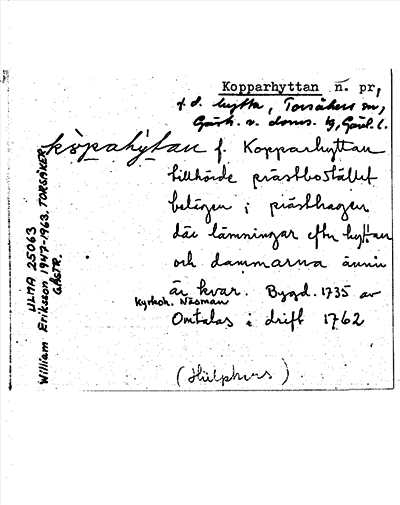 Kopparhyttan n. pr,
f. d. hytta, Torsåkers sn,
Gästr. v. doms. tg, Gävl. l.
köpahýtan f. Kopparhyttan
tillhörde prästbostället
belägen i prästhagen
där lämningar efter hyttan
och dammarna ännu
är kvar. Bygd. 1735 av
Kyrkoh. Näsman
Omtalas i drift 1762
(Hülphers)
ULMA 25063
William Eriksson 1947-1963. TORSÅKER,
GÄSTR.